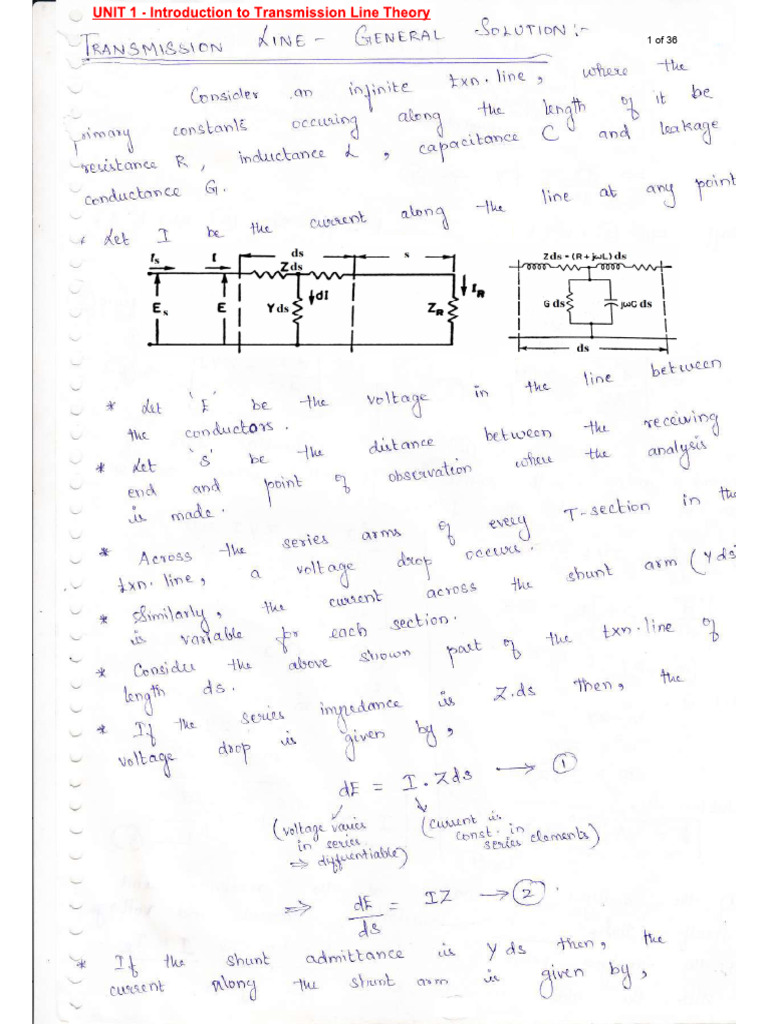 UNIT 1 - Introduction to Transmission Line Theory
TRANSMISSION LINE - GENERAL SOLUTION:-
1 of 36
Consider an infinite txn. line, where the
primary constants occuring along the length of it be
resistance R, inductance L, capacitance C and leakage
conductance G.
* Let I be the current along the line at any point
Is I ds s
Zds
Es E Yds dI ZR IR
Zds = (R + jωL) ds
G ds jωC ds
ds
* Let 'E' be the voltage in the line between
the conductors.
* Let 's' be the distance between the receiving
end and point of observation where the analysis
is made.
* Across the series arms of every T-section in the
txn. line, a voltage drop occurs.
* Similarly, the current across the shunt arm (Yds)
is variable for each section.
* Consider the above shown part of the txn. line of
length ds.
* If the series impedance is Z.ds then, the
voltage drop is given by,
dE = I . Zds → ①
(voltage varies (current is
in series const. in
⇒ differentiable) series elements)
⇒ dE/ds = IZ → ②.
* If the shunt admittance is Y ds then, the
current along the shunt arm is given by,